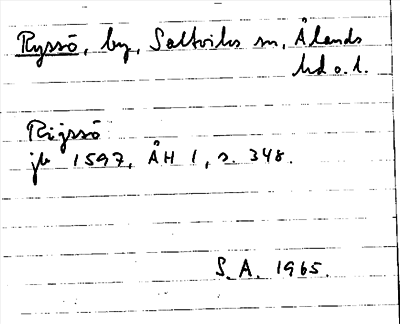 Ryssö, by, Saltviks sn, Ålands
hd o. l.
Rijssö
jb 1597, ÅH 1, s. 348.
S. A. 1965.